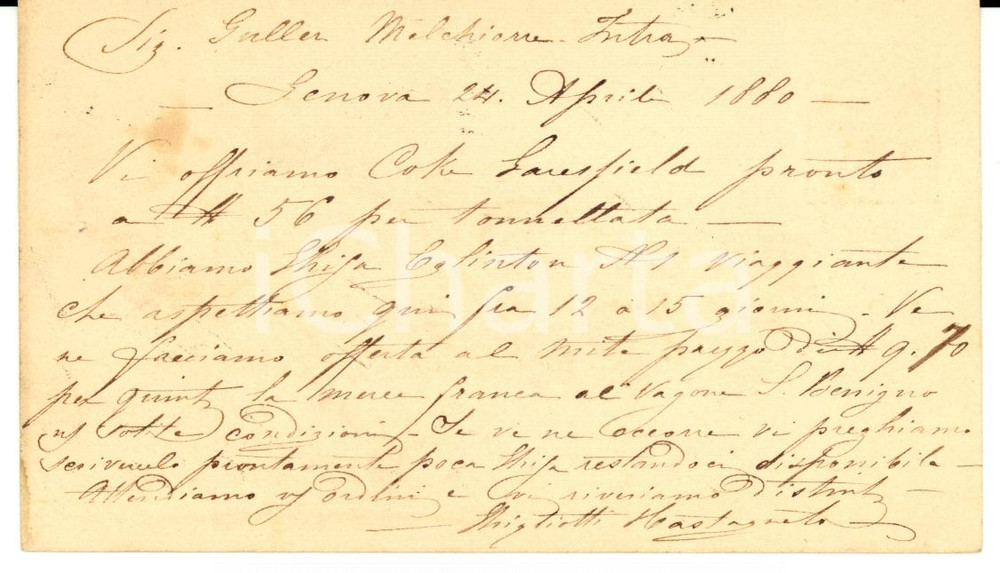 Sig. Guller Melchiorre - Intra -
- Genova 24. Aprile 1880 -
Vi offriamo Coke Garesfield pronto
a # 56 per tonnellata -
Abbiamo Ghisa Eglinton N1 viaggiante
che aspettiamo qui fra 12 a 15 giorni. Ve
ne facciamo offerta al mite prezzo di # 9.70
per quint. la merce franca al Vagone S. Benigno
ns/ solite condizioni - Se ve ne occorre vi preghiamo
scrivercelo prontamente poca Ghisa restandoci disponibile -
Attendiamo vs/ ordini e vi riveriamo distint. -
Ghigliotti
iCharta